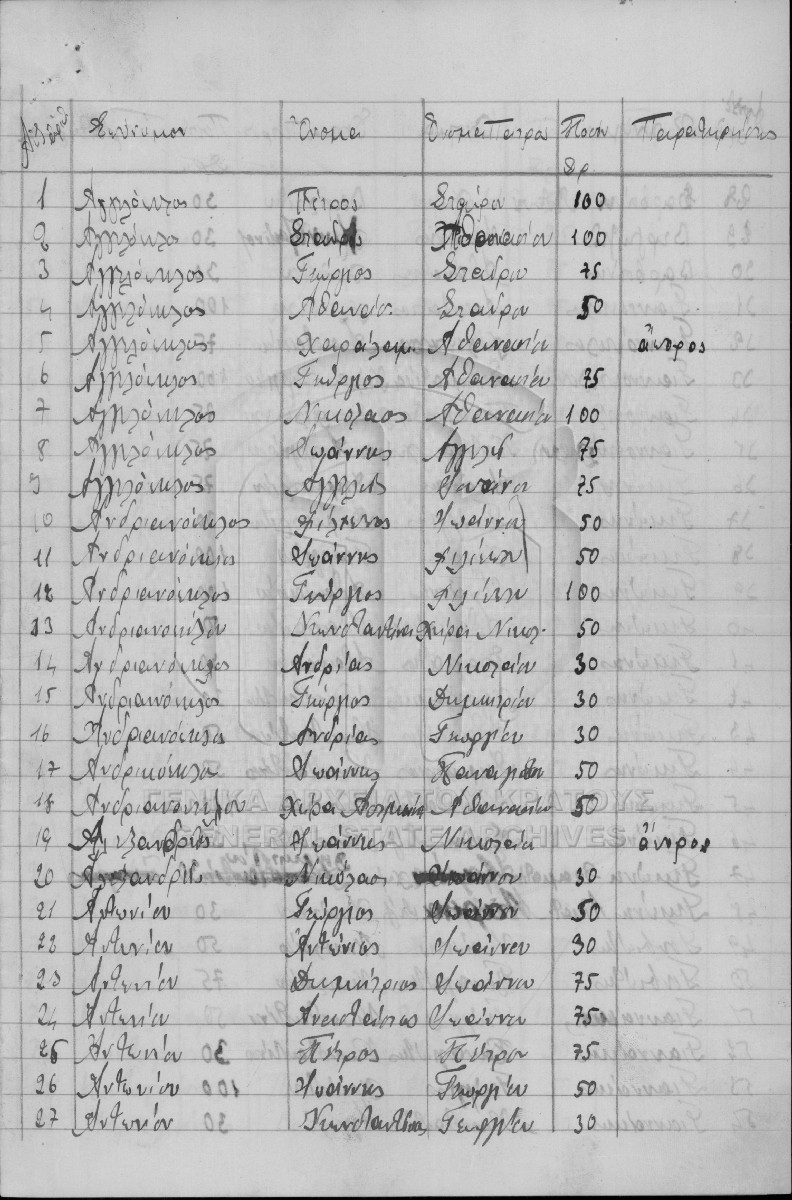 Αύξ. ἀριθ. Επώνυμον Όνομα Όνομα Πατρός Ποσόν Παρατηρήσεις
Δρ.
1 Αγγελόπλος Πέτρος Σταύρου 100
2 Αγγελόπλο Σταύρος Αθανασίου 100
3 Αγγελόπλος Γεώργιος Σταύρου 75
4 Αγγελόπλος Αθανάσ. Σταύρου 50
5 Αγγελόπλος Χαράλαμ. Αθανασίου ἄπορος
6 Αγγελόπλος Γεώργιος Αθανασίου 75
7 Αγγελόπλος Νικόλαος Αθανασίου 100
8 Αγγελόπλος Ιωάννης Αγγελή 75
9 Αγγελόπλος Αγγελής Ιωάννου 75
10 Ανδριανόπλος Φίλιππος Ιωάννου 50
11 Ανδριανόπλος Ιωάννης Φιλίππου 50
12 Ανδριανόπλος Γεώργιος Φιλίππου 100
13 Ανδριανοπύλου Κωνσταντίνα Χήρα Νικολ. 50
14 Ανδριανόπλος Ανδρέας Νικολάου 30
15 Ανδριανόπλος Γεώργιος Δημητρίου 30
16 Ανδριανόπλο Ανδρέας Γεωργίου 30
17 Ανδρικόπλο Ιωάννης Παναγιώτου 50
18 Χήρα Αθανασίου 50
ΓΕΝΙΚΑ ΑΡΧΕΙΑ ΤΟΥ ΚΡΑΤΟΥΣ
GENERAL STATE ARCHIVES
19 Αλεξανδρής Ιωάννης Νικολάου ἄπορος
20 Αλεξανδρής Νικόλαος Ιωάννου 30
21 Αντωνίου Γεώργιος Ιωάννου 50
22 Αντωνίου Αντώνιος Ιωάννου 30
23 Αντωνίου Δημήτριος Ιωάννου 75
24 Αντωνίου Αναστάσιος Ιωάννου 75
25 Αντωνίου Πέτρος Πέτρου 75
26 Αντωνίου Ιωάννης Γεωργίου 50
27 Αντωνίου Κωνσταντίνος Γεωργίου 30